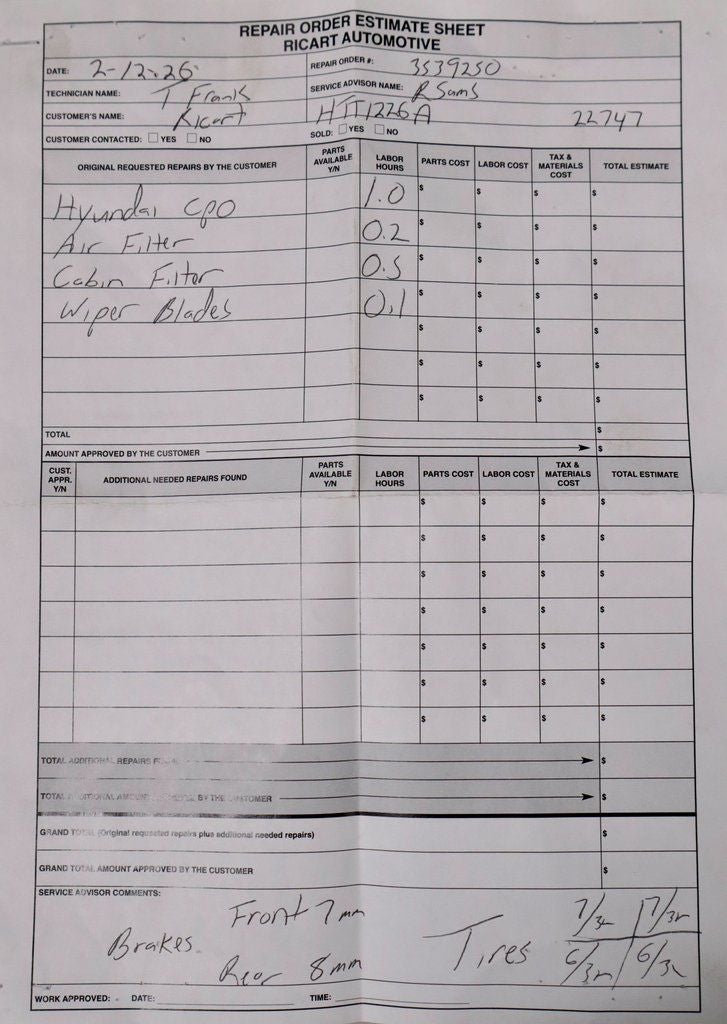 REPAIR ORDER ESTIMATE SHEET
RICART AUTOMOTIVE
DATE: 2-12-26 REPAIR ORDER #: 3539250
TECHNICIAN NAME: T Frank SERVICE ADVISOR NAME: R Sams
CUSTOMER'S NAME: Ricart HTT1226A 22747
CUSTOMER CONTACTED: YES NO SOLD: YES NO
ORIGINAL REQUESTED REPAIRS BY THE CUSTOMER PARTS AVAILABLE Y/N LABOR HOURS PARTS COST LABOR COST TAX & MATERIALS COST TOTAL ESTIMATE
Hyundai CPO 1.0 $ $ $ $
Air Filter 0.2 $ $ $ $
Cabin Filter 0.5 $ $ $ $
Wiper Blades 0.1 $ $ $ $
$ $ $ $
$ $ $ $
$ $ $ $
TOTAL $
AMOUNT APPROVED BY THE CUSTOMER $
CUST. APPR. Y/N ADDITIONAL NEEDED REPAIRS FOUND PARTS AVAILABLE Y/N LABOR HOURS PARTS COST LABOR COST TAX & MATERIALS COST TOTAL ESTIMATE
$ $ $ $
$ $ $ $
$ $ $ $
$ $ $ $
$ $ $ $
$ $ $ $
$ $ $ $
TOTAL ADDITIONAL REPAIRS $
TOTAL ADDITIONAL AMOUNT BY THE CUSTOMER $
GRAND TOTAL (Original requested repairs plus additional needed repairs) $
GRAND TOTAL AMOUNT APPROVED BY THE CUSTOMER $
SERVICE ADVISOR COMMENTS:
Front 7mm 7/32 7/32
Brakes Tires
Rear 8mm 6/32 6/32
WORK APPROVED: DATE: TIME: